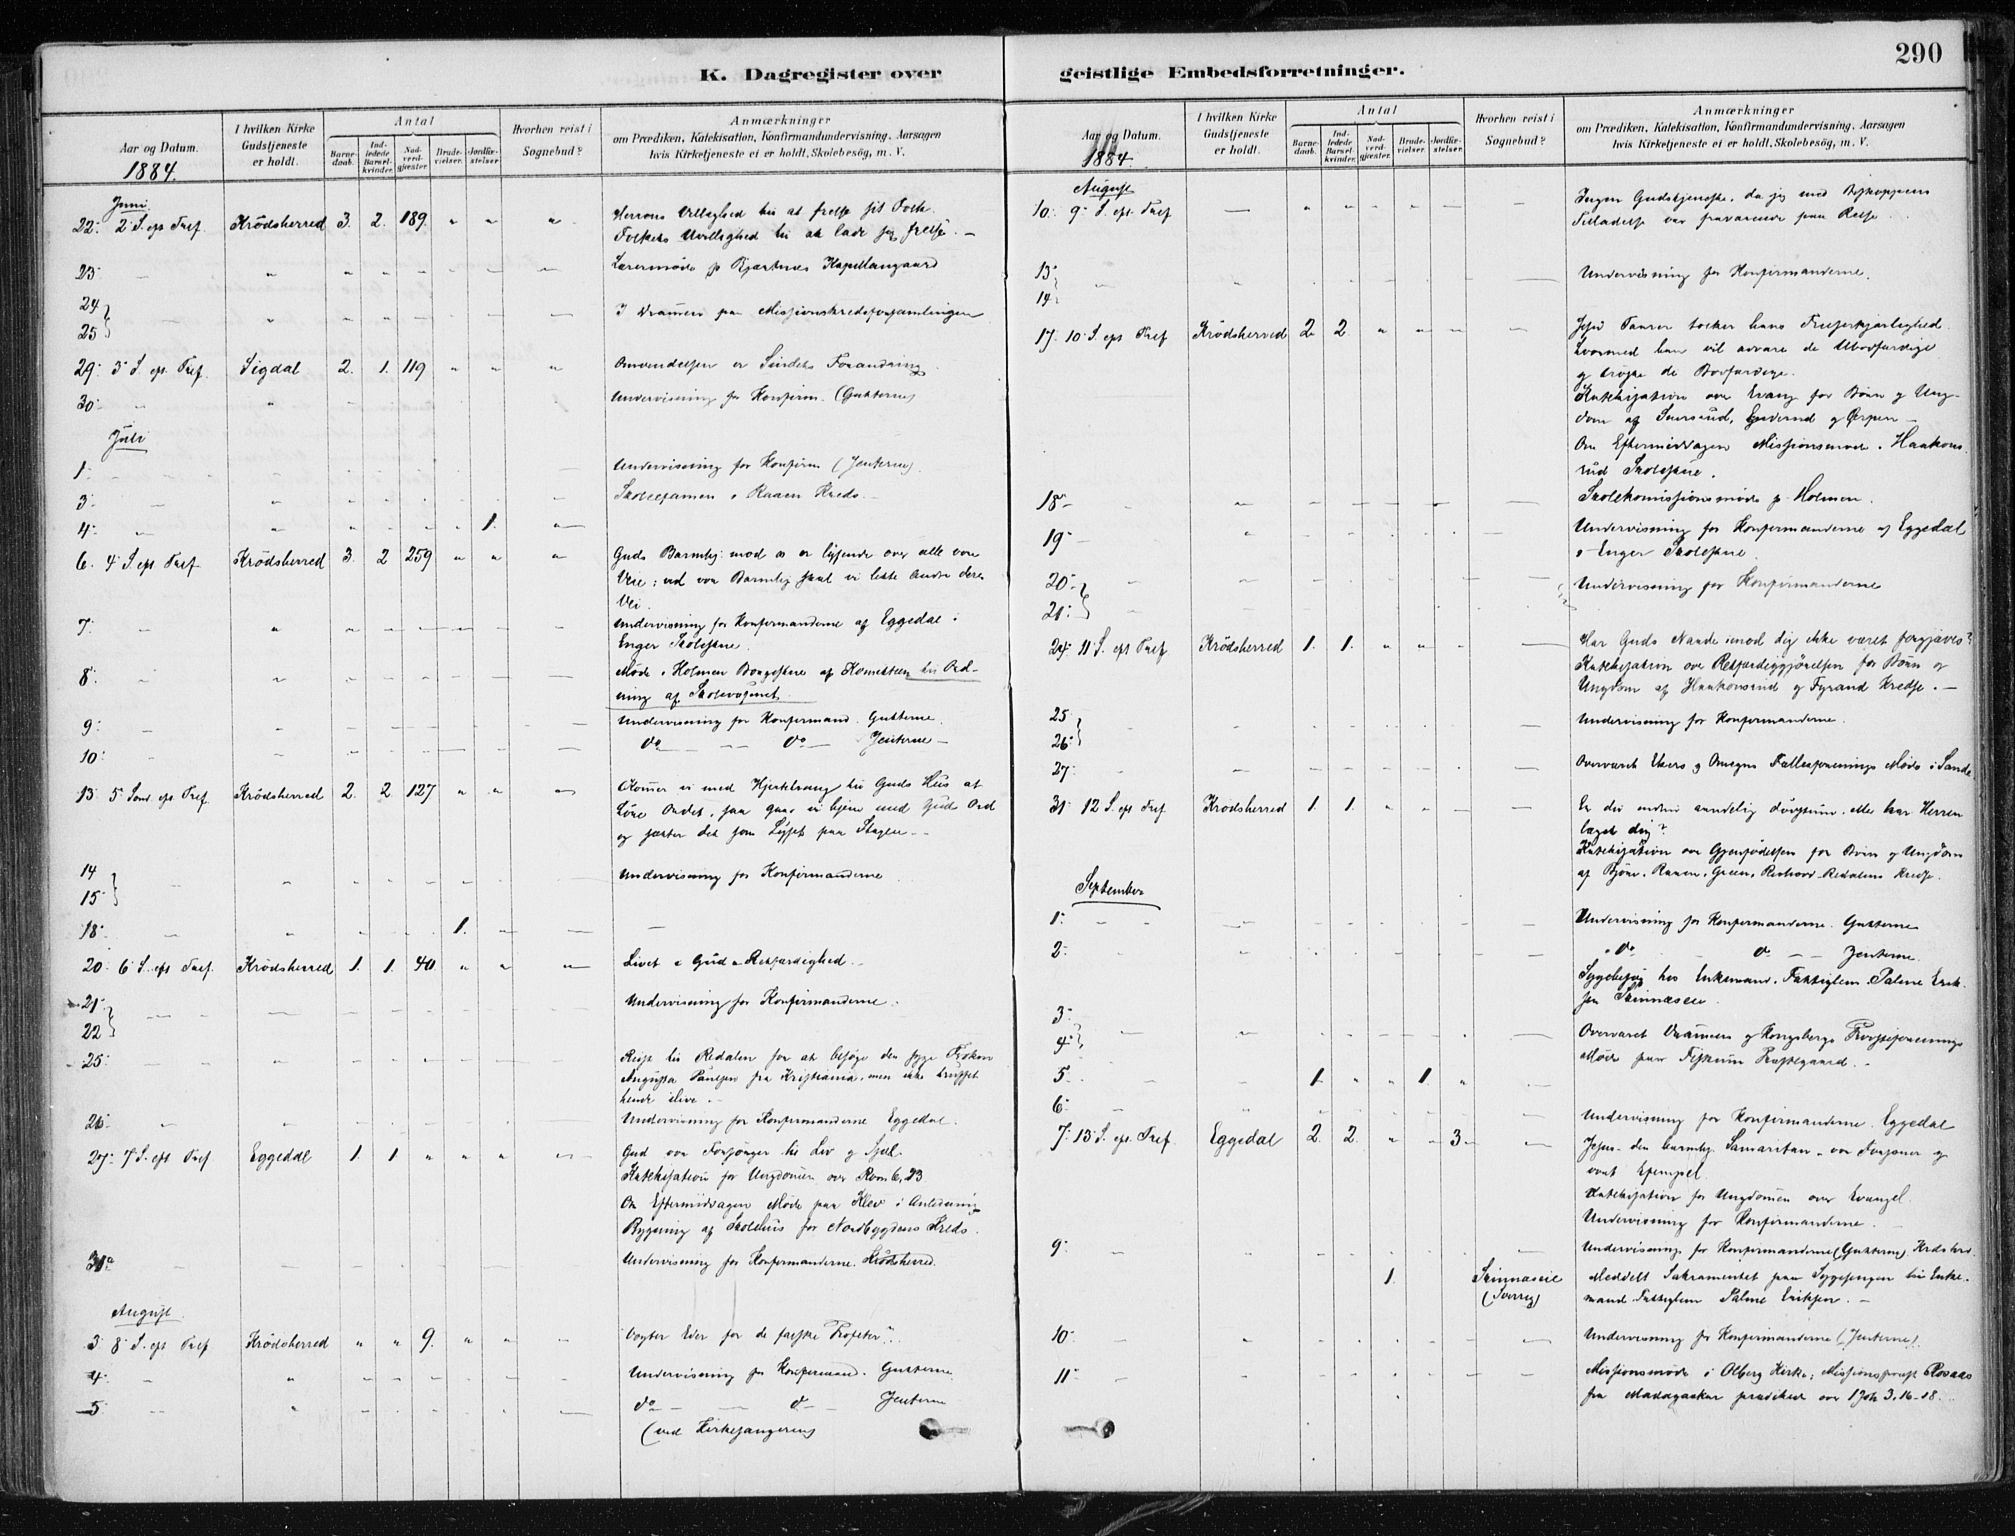 290
K. Dagregister over
Aar og Datum.
1884.
I hvilken Kirke
Gudstjeneste
er holdt.
Antal
Barne-
daab.
Ind-
ledede
Barsel-
kvinder.
Nad-
verd-
gjester.
Brude-
vielser.
Jordfæ-
stelser.
Hvorhen reist i
Sognebud?
Anmærkninger
om Prædiken, Katekisation, Konfirmandundervisning, Aarsagen
hvis Kirketjeneste ei er holdt, Skolebesög, m. V.
Juni
22. 2 S. eft Tref. Krödsherred 3. 2. 189. " " " Herrens Villighed til at frelse sit Folk.
Folkets Uvillighed til at lade sig frelse. —
23 — " Lærermøde p Bjærtnes Kapellangaard
24
25 I Dramen paa Missionskredsforsamlingen
29. 3 S. eft. Tref. Sigdal 2. 1. 119 " " " Omvendelsen er Sindets Forandring.
30. Undervisning for Konfirm. (Gutterne)
Juli
1. Undervisning for Konfirm (Jenterne).
3. Skoleexamen i Raaen Kreds.
4. 1.
6. 4 S. eft Tref. Krödsherred 3. 2 259 " " " Guds Barmhj. mod os er lysende over alle vore
Veie; ved vor Barmhj skal vi lette Andre deres
Vei.
7. Undervisning for Konfirmanderne af Eggedal i
Enger Skolestue.
8. Møde i Holmen Bongestue af Komiteen til Ord-
ning af Skolevæsenet.
9. Undervisning for Konfirmand. Gutterne.
10. do — do — Jenterne —
13 5. Sønd. eft. Tref. Krödsherred 2. 2 127 " " " Kommer vi med Hjertetrang til Guds Hus at
høre Ordet, saa gaar vi hjem med Guds Ord
og sætter det som Lyset paa Stagen. —
14
15 Undervisning for Konfirmanderne
18. 1.
20. 6 S. eft Tref. Krödsherred 1. 1. 40. " " " Livet i Gud i Retfærdighed.
21
22 Undervisning for Konfirmanderne.
25. Reist til Redalen for at besøge den syge Frøken
Augusta Paulsen fra Kristiania, men ikke truffet
hende ilive. —
26 Undervisning for Konfirmanderne Eggedal.
27. 7 S. eft Tref Eggedal 1. 1 " " " Gud vor Forsørger til Liv og Sjæl.
Katekisation for Ungdommen over Rom 6, 23.
Om Eftermiddagen Møde paa Klev i Anledning
Bygning af Skolehus for Nordbygdens Kreds.
Undervisning for Konfirmanderne. Krödsherred.
August.
3. 8 S. eft Tref Krödsherred " " 9. " " Vogter Eder for de falske Profeter".
4 Undervisning for Konfirmand. Gutterne.
5 do — d — Jenterne
(ved Kirkesangeren)
geistlige Embedsforretninger.
Aar og Datum.
1884.
I hvilken Kirke
Gudstjeneste
er holdt.
Antal
Barne-
daab.
Ind-
ledede
Barsel-
kvinder.
Nad-
verd-
gjester.
Brude-
vielser.
Jordfæ-
stelser.
Hvorhen reist i
Sognebud?
Anmærkninger
om Prædiken, Katekisation, Konfirmandundervisning, Aarsagen
hvis Kirketjeneste ei er holdt, Skolebesög, m. V.
August
10. 9 S. eft. Tref — Ingen Gudstjeneste, da jeg med Biskoppens
Tilladelse var fraværende paa Reise.
13
14 Undervisning for Konfirmanderne.
17. 10 S. eft Tref Krödsherred 2. 2. Jesu Taarer tolker hans Frelserkjærlighed
hvormed han vil advare de Ubodfærdige
og trøste de Bodfærdige.
Katekisation over Evang for Børn og Ung-
dom af Snersrud, Enderud og Ørpen —
Om Eftermiddagen Missionsmøde i Haakons
rud Skolestue.
18 Skolekomissionsmøde p. Holmen.
19 Undervisning for Konfirmanderne af Eggedal
i Enger Skolestue.
20.
21. Undervisning for Konfirmanderne
24. 11 S. eft Tref Krödsherred 1. 1. Har Guds Naade imod dig ikke været forgjæves?
Katekisation over Retfærdiggjørelsen for Børn og
Ungdom af Haakonsrud og Fyrand Kredse. —
25
26. Undervisning for Konfirmanderne.
27. Overværet Ekers og Omegns Fællesforenings Møde i Sande.
31. 12 S. eft Tref. Krödsherred 1. 1. Er du endnu aandelig døvstum, eller har Herren
læget dig?
Katekisation over Gjenfødelsen for Børn og Ungdom
af Björe, Raaen, Green, Redalens Kredse.
September
1. Undervisning for Konfirmanderne. Gutterne
2. do d. — Jenterne.
Sygebesøg hos Enkemand, Fattiglem Palme Erik-
sen Skinnæseie.
3.
4. Overværet Dramens og Kongsbergs Provstiforenings
Møde paa Fiskum Præstegaard. —
5. 1. " " 1. "
6. Undervisning for Konfirmanderne. Eggedal
7. 13 S. eft. Tref. Eggedal 2. 2. " 3 Jesus den barmhj. Samaritan, vor Forsoner og
vort Exempel.
Katekisation for Ungdommen over Evangel.
Undervisning for Konfirmanderne.
9. Undervisning for Konfirmanderne (Gutterne) Krdsherr.
1. Skinnæseie Meddelt Sakramentet paa Sygesengen til Enke-
mand Fattiglem Palme Eriksen. —
10. Undervisning for Konfirmanderne (Jenterne).
11 Missionsmøde i Olberg Kirke; Missionsprest Rosaas
fra Madagaskar prædiket over 1 Joh 3, 16-18.